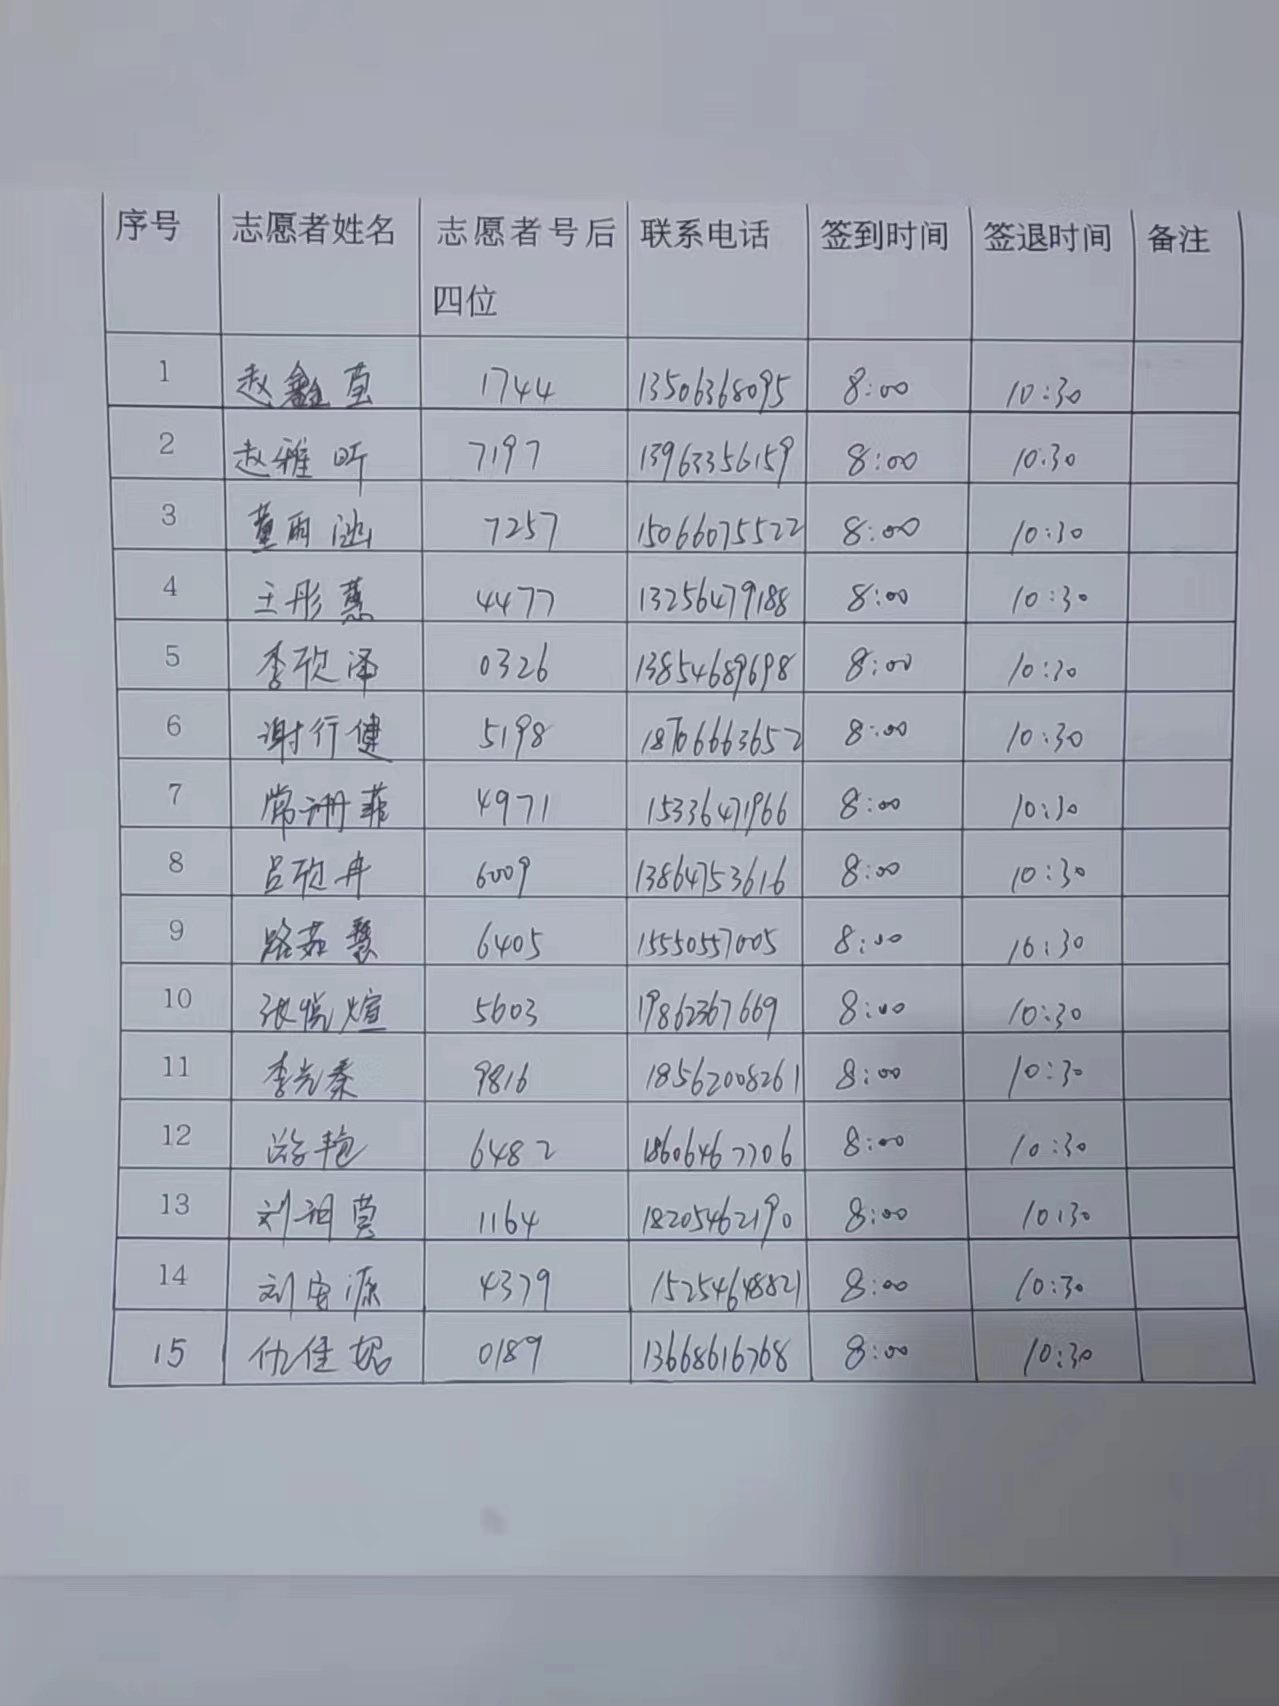 序号 志愿者姓名 志愿者号后四位 联系电话 签到时间 签退时间 备注
1 赵鑫萱 1744 13506368095 8:00 10:30
2 赵雅昕 7197 13963356159 8:00 10:30
3 董雨涵 7257 15066075522 8:00 10:30
4 王彤蕙 4477 13256479188 8:00 10:30
5 李欣泽 0326 13854689698 8:00 10:30
6 谢行健 5198 18706663652 8:00 10:30
7 常珊菲 4971 15336471966 8:00 10:30
8 吕欣冉 6009 13864753616 8:00 10:30
9 路茹慧 6405 15550557005 8:00 10:30
10 张悦煊 5603 19862367669 8:00 10:30
11 李光秦 9816 18562008261 8:00 10:30
12 游艳 6482 18606467706 8:00 10:30
13 刘 1164 18205462190 8:00 10:30
14 刘安源 4379 15254648821 8:00 10:30
15 仇佳 0189 13668616768 8:00 10:30